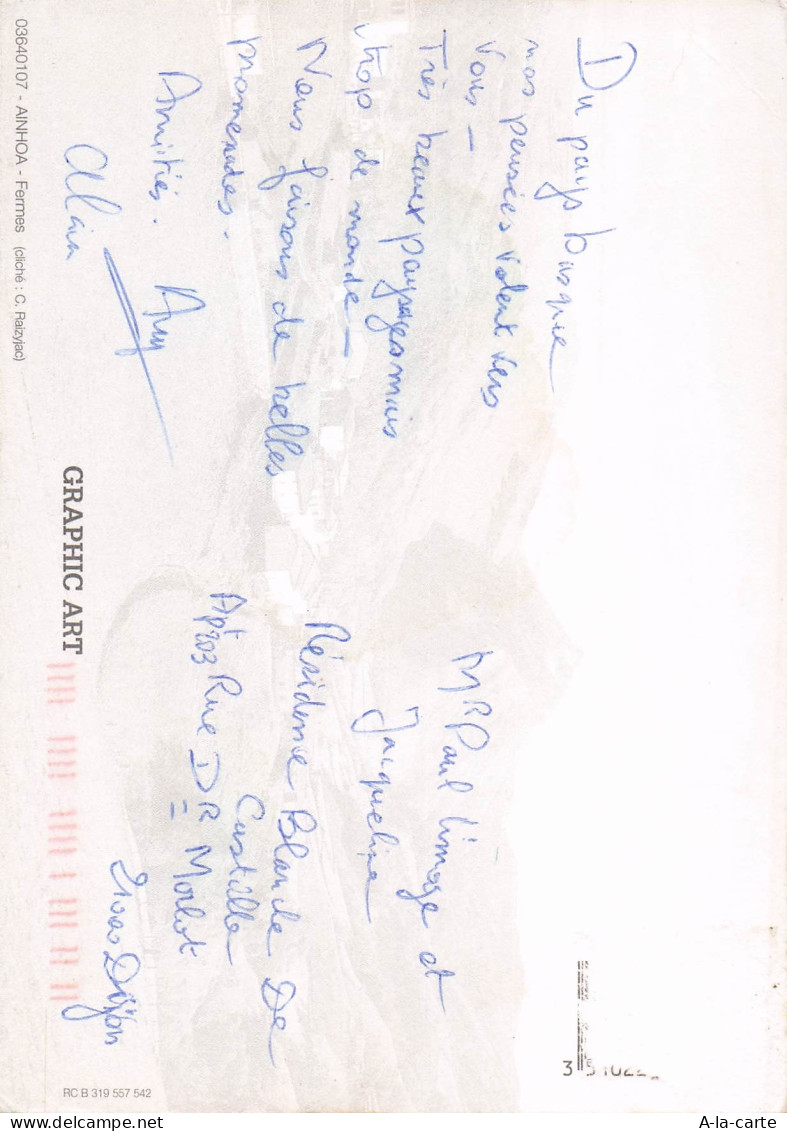 Du pays basque
nos pensées volent vers
Vous -
Très beaux paysages mais
trop de monde -
Nous faisons de belles
promenades.
Amitiés.
Alain
Mr Paul Limoge et
Jacqueline
Résidence Blanche De
Castille
Apt 203 Rue DR Morlot
21000 Dijon
03640107 - AINHOA - Fermes (cliché : C. Raizyjac)
GRAPHIC ART
RC B 319 557 542
A-la-carte